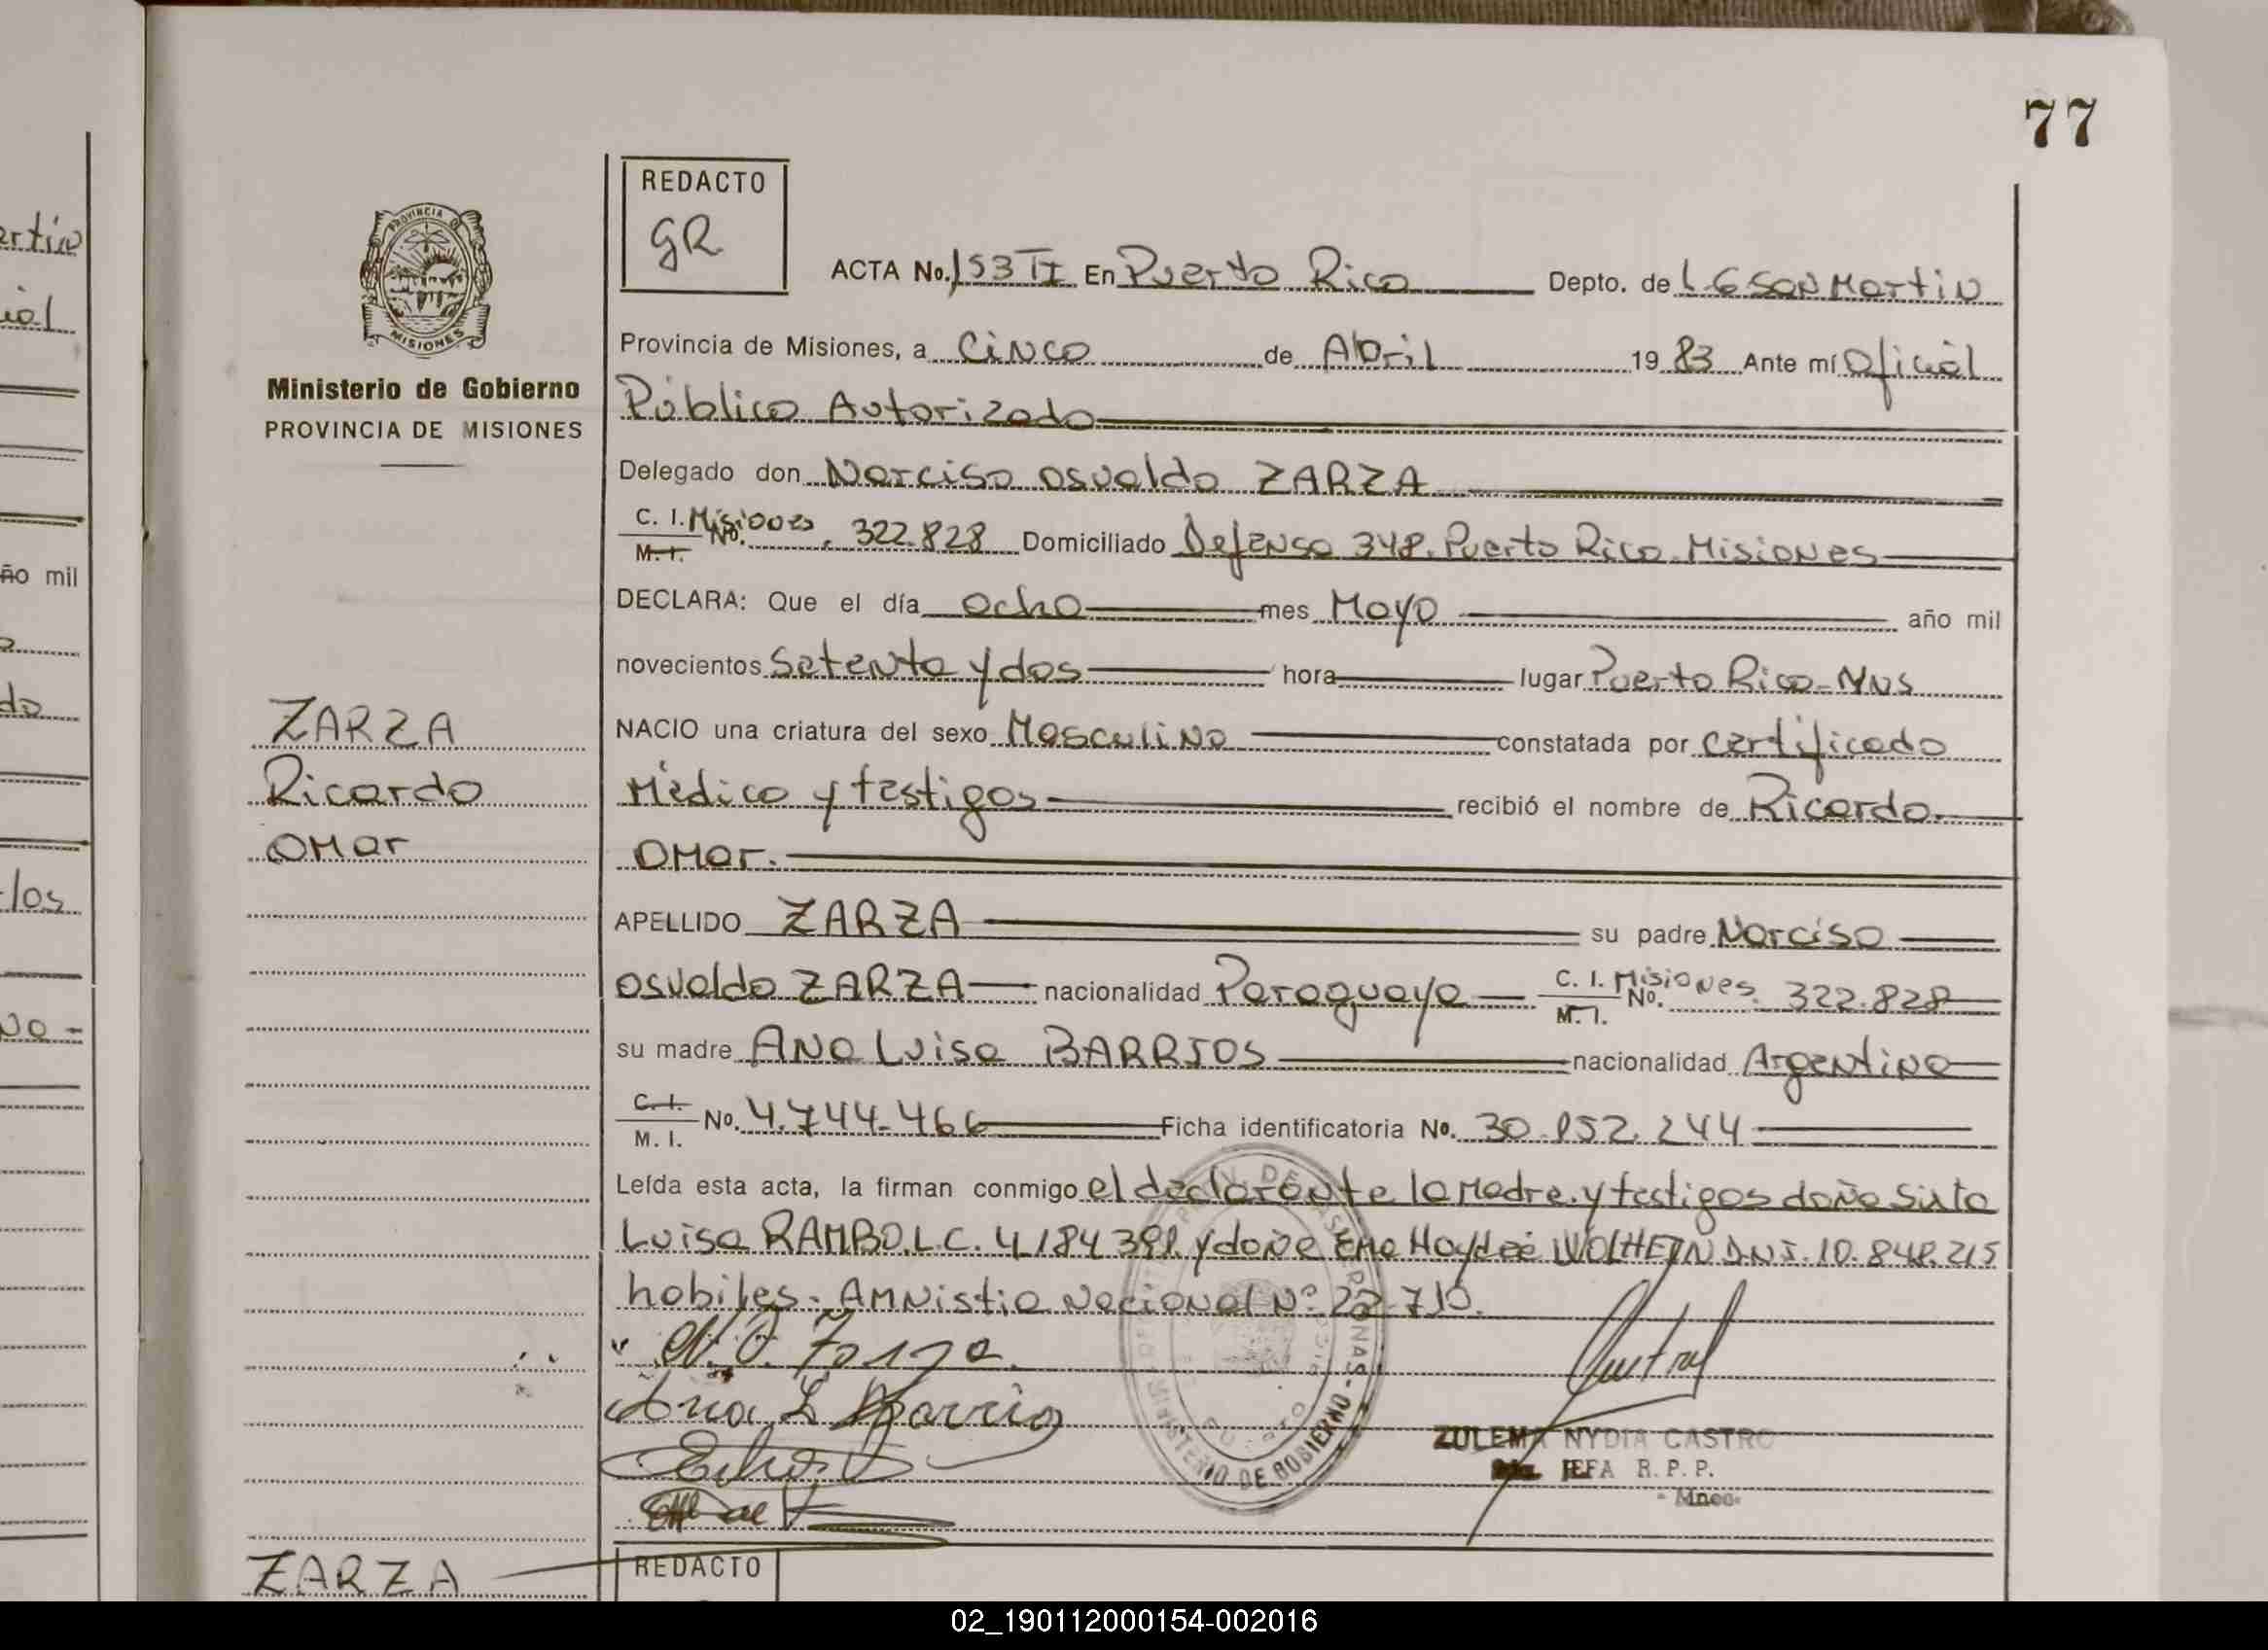 77
REDACTO
GR
ACTA No. 153 TI En Puerto Rico Depto. de L G San Martin
Provincia de Misiones, a Cinco de Abril 1983 Ante mí Oficial
Público Autorizado
Delegado don Narciso Osvaldo ZARZA
C. I. M. I. Misiones No. 322.828 Domiciliado Defensa 348. Puerto Rico. Misiones
DECLARA: Que el día ocho mes Mayo año mil
novecientos Setenta y dos hora lugar Puerto Rico-Mns
NACIO una criatura del sexo Masculino constatada por certificado
Médico y testigos recibió el nombre de Ricardo.
Omar.
APELLIDO ZARZA su padre Narciso
Osvaldo ZARZA nacionalidad Paraguaya C. I. M. I. Misiones No. 322.828
su madre Ana Luisa BARRIOS nacionalidad Argentina
C. I. M. I. No. 4.744.466 Ficha identificatoria No. 30.952.244
Leída esta acta, la firman conmigo el declarante la Madre. y testigos doña Sixta
Luisa RAMBO. L.C. 4.184.391 y doña Ema Haydeé WOLHEIN D.N.I. 10.848.215
habiles. Amnistia Nacional Nº 22.710.
N. O. Zarza.
Ana L Barrios
ZULEMA NYDIA CASTRO
JEFA R. P. P.
Mnes.
PROVINCIA DE
MISIONES
Ministerio de Gobierno
PROVINCIA DE MISIONES
ZARZA
Ricardo
Omar
ZARZA
REDACTO
MINISTERIO DE GOBIERNO
ño mil
los
02_190112000154-002016